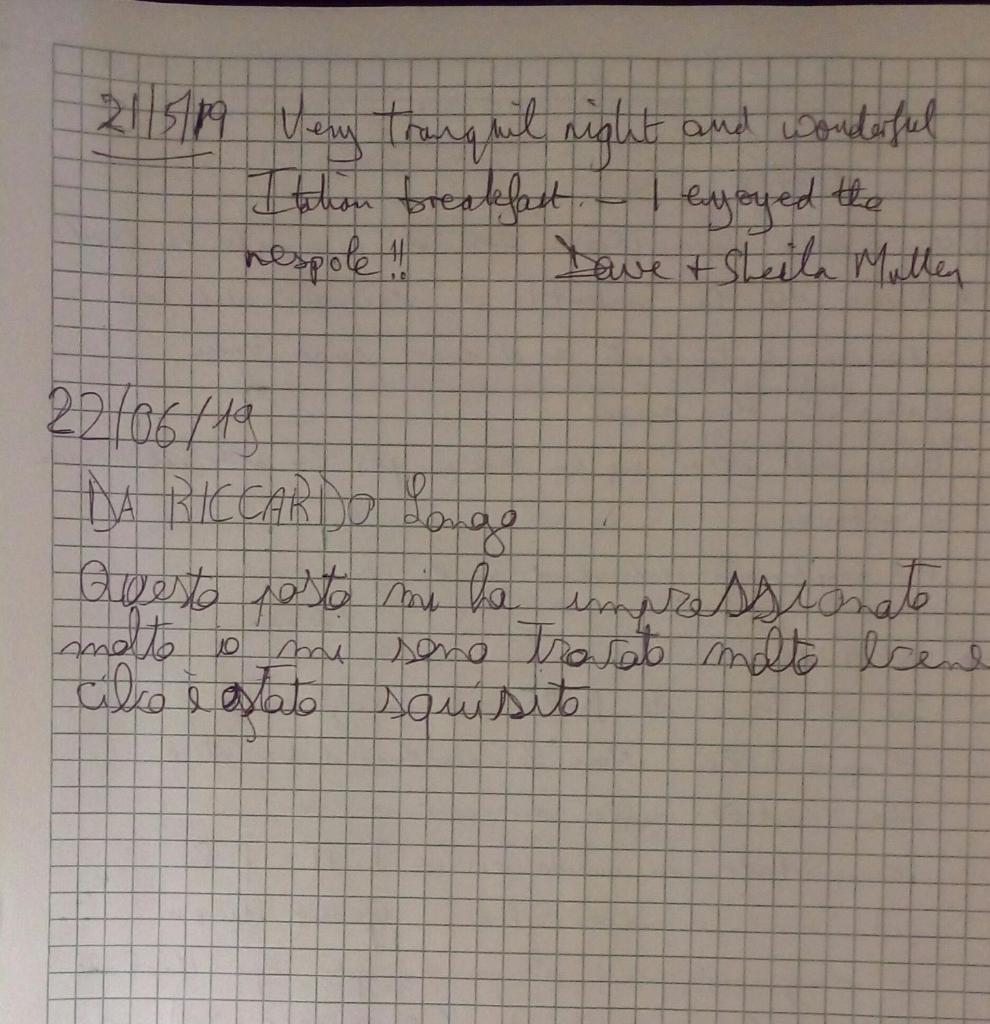 21/5/19 Very tranquil night and wonderful
Italian breakfast. – I enjoyed the
nespole!! Dave + Sheila Mullen
22/06/19
DA RICCARDO Longo
Questo posto mi ha impressionato
molto io mi sono trovato molto bene
cibo è stato squisito